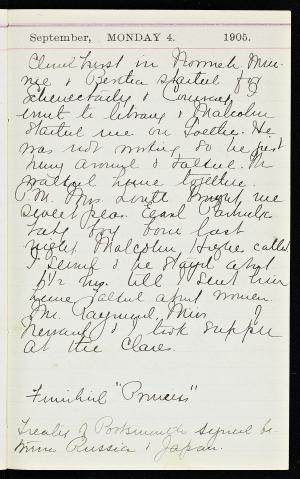 September, MONDAY 4. 1905.
Cloud burst in Norwich. Min-
nie & Bertha started for
Schenectady & Conrad &
went to library & Malcolm
started me on Goethe. He
was not working so he just
hung around & talked. We
walked home together.
P.M. Mrs. brought me
sweet peas. Carl
baby boy born last
night. Malcolm Higbe called
I sewed & he stayed about
1½ hrs. till I sent him
home. Talked about women.
Mr. Raymond, Miss
& I took supper
at the Clares.
Finished "Princess"
Treaty of Portsmouth signed be-
tween Russia & Japan.